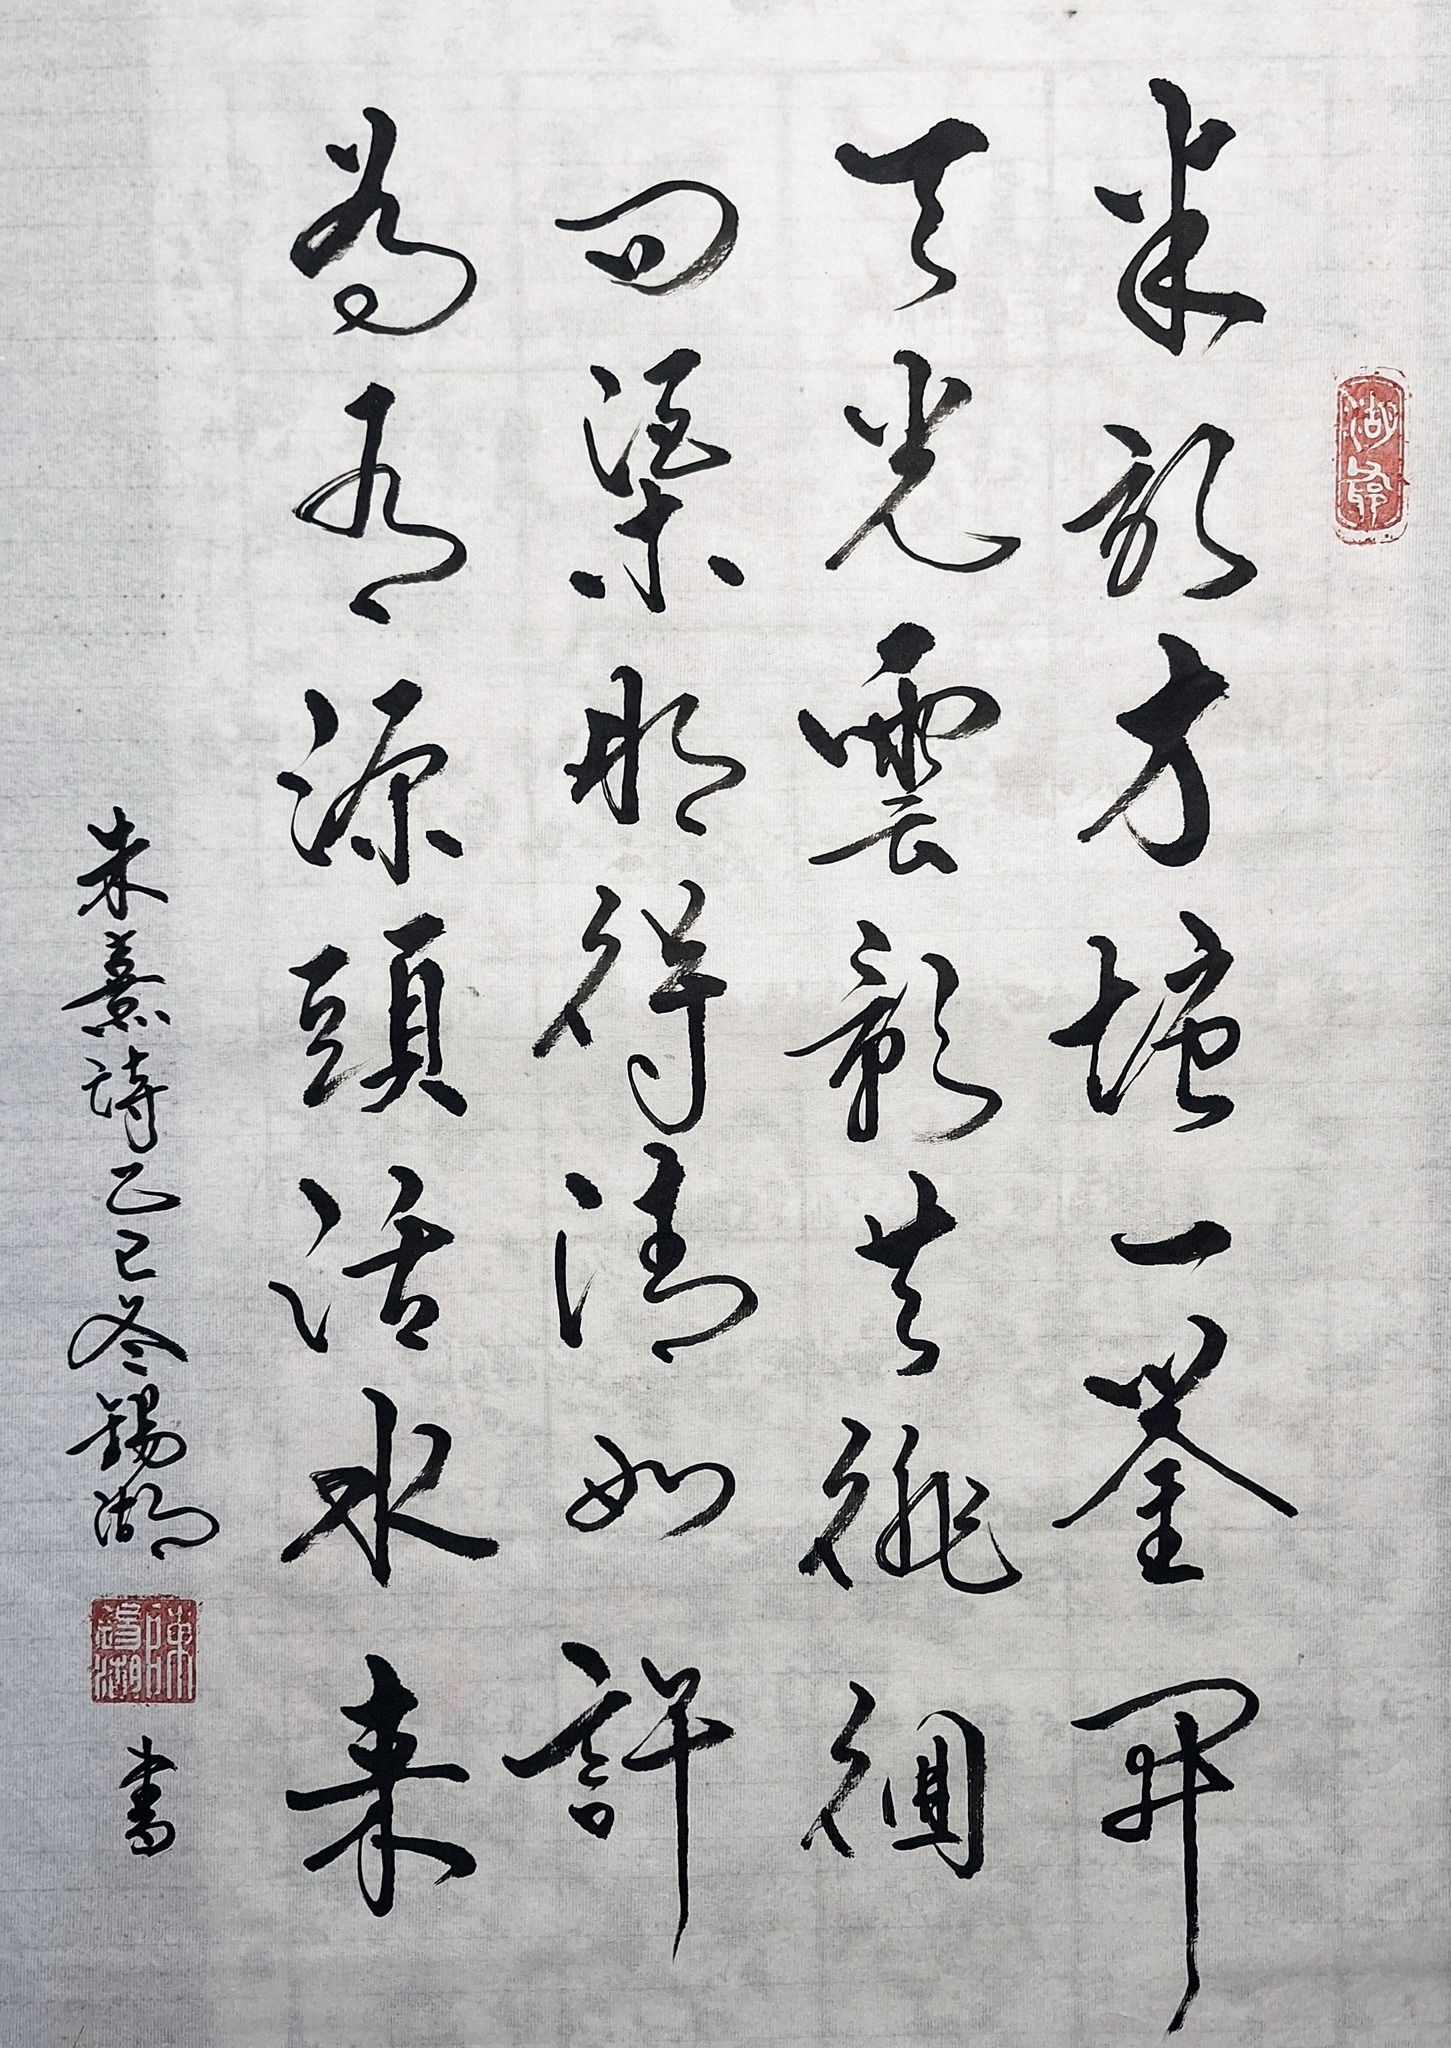 半畝方塘一鑒開
天光雲影共徘徊
問渠那得清如許
為有源頭活水来
朱熹詩乙巳冬錫湖
書